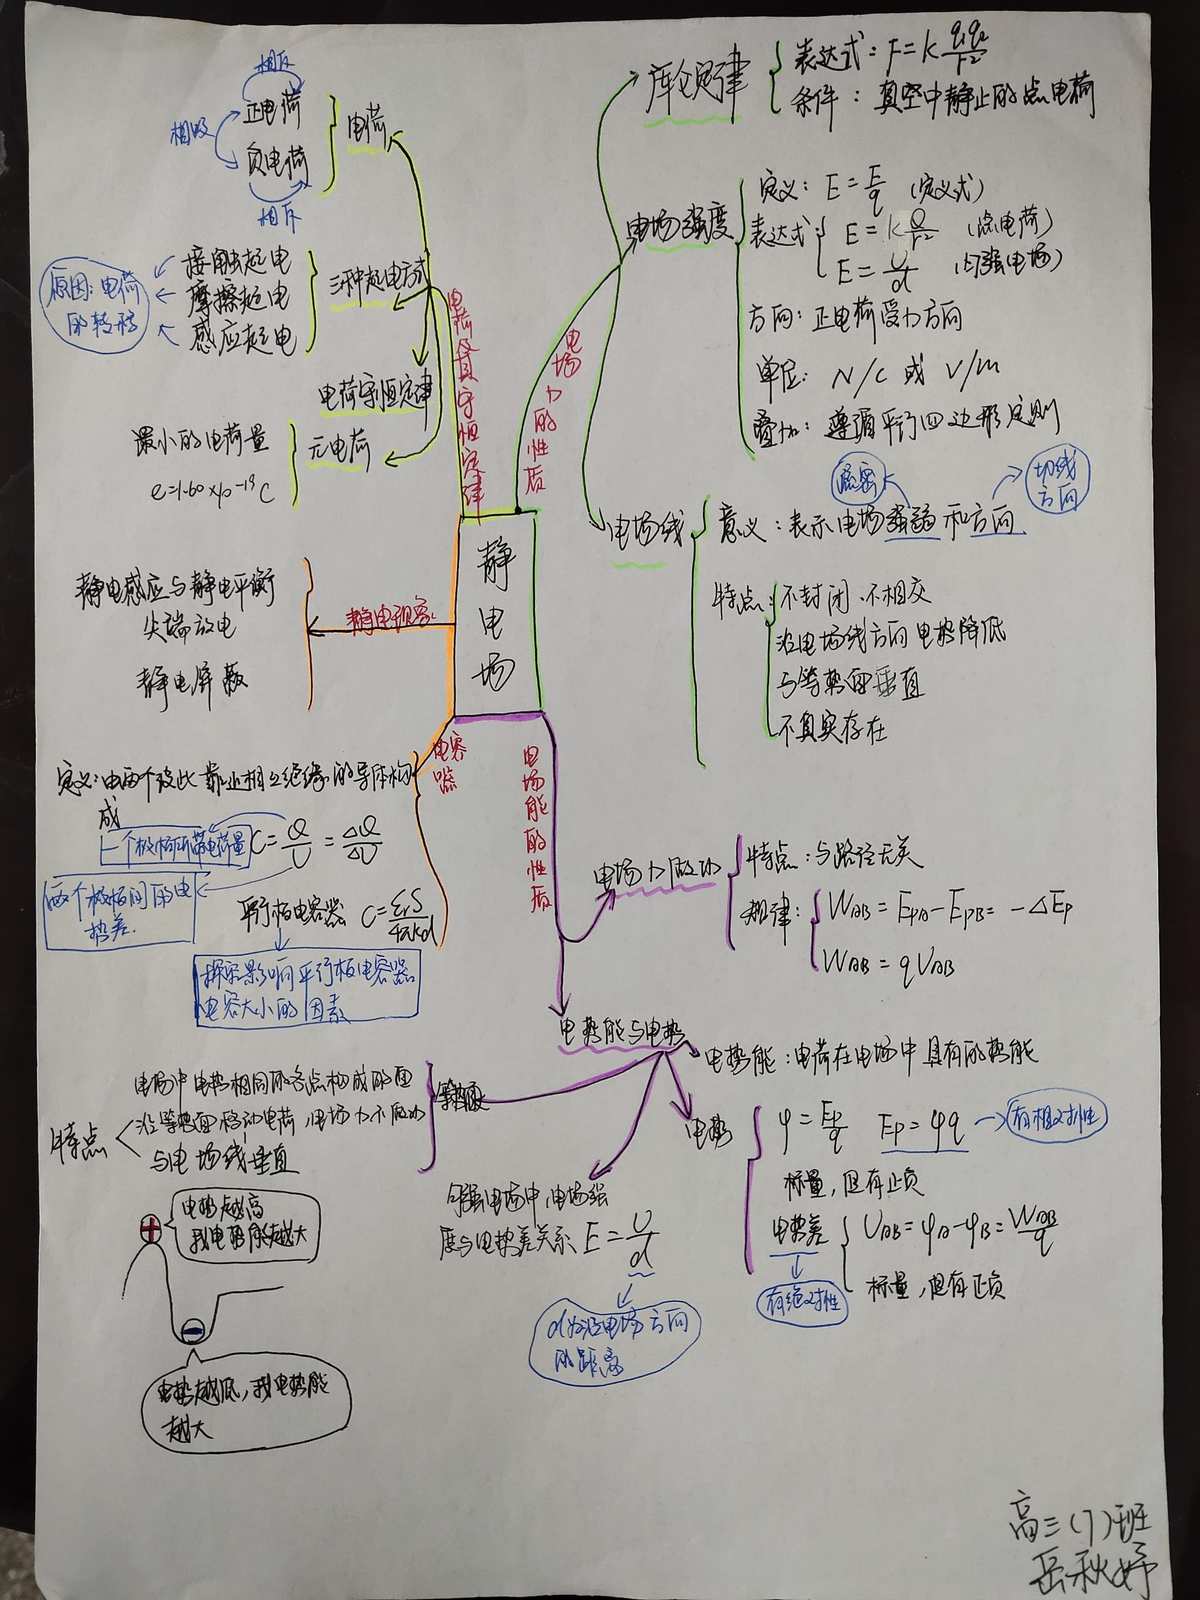 静电场
电荷及其守恒定律
电荷
正电荷
负电荷
相斥
相吸
相斥
三种起电方式
接触起电
摩擦起电
感应起电
原因:电荷
的转移
电荷守恒定律
元电荷
最小的电荷量
e=1.60×10⁻¹⁹C
电场力的性质
库仑定律
表达式:F=k q₁q₂/r²
条件:真空中静止的点电荷
电场强度
定义:E=F/q (定义式)
表达式
E=kQ/r² (点电荷)
E=U/d (匀强电场)
方向:正电荷受力方向
单位:N/C 或 V/m
叠加:遵循平行四边形定则
电场线
意义:表示电场强弱和方向
疏密
切线
方向
特点:不封闭、不相交
沿电场线方向电势降低
与等势面垂直
不真实存在
静电现象
静电感应与静电平衡
尖端放电
静电屏蔽
电容器
定义:由两个彼此靠近相互绝缘的导体构
成
C=Q/U=ΔQ/ΔU
一个极板所带电荷量
两个极板间的电
势差.
平行板电容器 C=εrS/4πkd
探究影响平行板电容器
电容大小的因素
电场能的性质
电场力做功
特点:与路径无关
规律:WAB=EpA-EpB=-ΔEp
WAB=qUAB
电势能与电势
电势能:电荷在电场中具有的势能
电势
φ=Ep/q Ep=φq
有相对性
标量,但有正负
电势差
UAB=φA-φB=WAB/q
有绝对性
标量,但有正负
匀强电场中,电场强
度与电势差关系 E=U/d
d为沿电场方向
的距离
等势面
电场中电势相同的各点构成的面
特点
沿等势面移动电荷,电场力不做功
与电场线垂直
+
电势越高
我电势能越大
−
电势越低,我电势能
越大
高三(7)班
岳秋婷